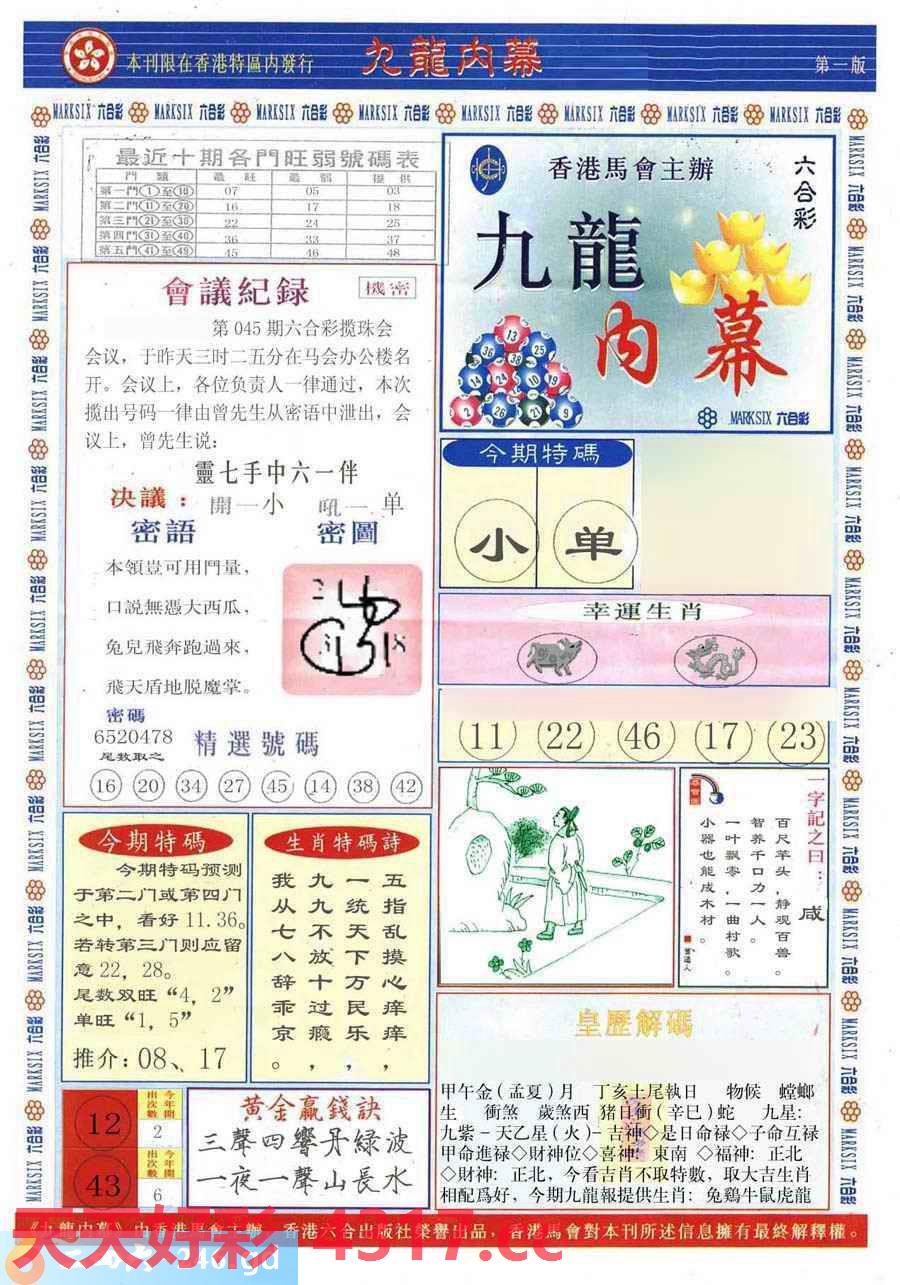 本刊限在香港特區内發行
九龍内幕
第一版
MARKSIX 六合彩 MARKSIX 六合彩 MARKSIX 六合彩 MARKSIX 六合彩 MARKSIX 六合彩 MARKSIX 六合彩 MARKSIX 六合彩 MARKSIX 六合彩
最近十期各門旺弱號碼表
門類 最旺 最弱 提供
第一門①至⑩ 07 05 03
第二門⑪至⑳ 16 17 18
第三門㉑至㉚ 22 24 25
第四門㉛至㊵ 36 33 37
第五門㊶至㊾ 45 46 48
香港馬會主辦
六合彩
九龍
内幕
MARKSIX 六合彩
會議紀録
機密
第045期六合彩揽珠会
会议，于昨天三吋二五分在马会办公楼名
开。会议上，各位负责人一律通过，本次
揽出号码一律由曾先生从密语中泄出，会
议上，曾先生说：
靈七手中六一伴
决議：開一小 吼一单
密語
密圖
本領豈可用門量，
口説無憑大西瓜，
兔兒飛奔跑過來，
飛天盾地脱魔掌。
密碼
6520478
尾数取之
精選號碼
16 20 34 27 45 14 38 42
今期特碼
小 单
幸運生肖
11 22 46 17 23
一字記之曰：咸
百尺竿头，静观百兽。
智养千口力一人。
一叶飘零，一曲村歌。
小器也能成木材。
今期特碼
今期特码预测
于第二门或第四门
之中，看好11.36。
若转第三门则应留
意22，28。
尾数双旺“4，2”
单旺“1，5”
推介：08、17
生肖特碼詩
五指乱摸心痒痒，
一统天下万民乐，
九九不放十过瘾，
我从七八辞乖京。
皇歷解碼
甲午金(孟夏)月 丁亥土尾執日 物候 螳螂
生 衝煞 歲煞西 猪日衝(辛巳)蛇 九星：
九紫－天乙星(火)－吉神◇是日命禄◇子命互禄
甲命進禄◇財神位◇喜神：東南 ◇福神：正北
◇財神：正北，今看吉肖不取特數，取大吉生肖
相配爲好，今期九龍報提供生肖：兔鷄牛鼠虎龍
12
今年開出次數
2
43
今年開出次數
6
黃金贏錢訣
三聲四響丹綠波
一夜一聲山長水
《九龍内幕》由香港馬會主辦，香港六合出版社榮譽出品，香港馬會對本刊所述信息擁有最終解釋權。
天天好彩 4317.cc
246.gd